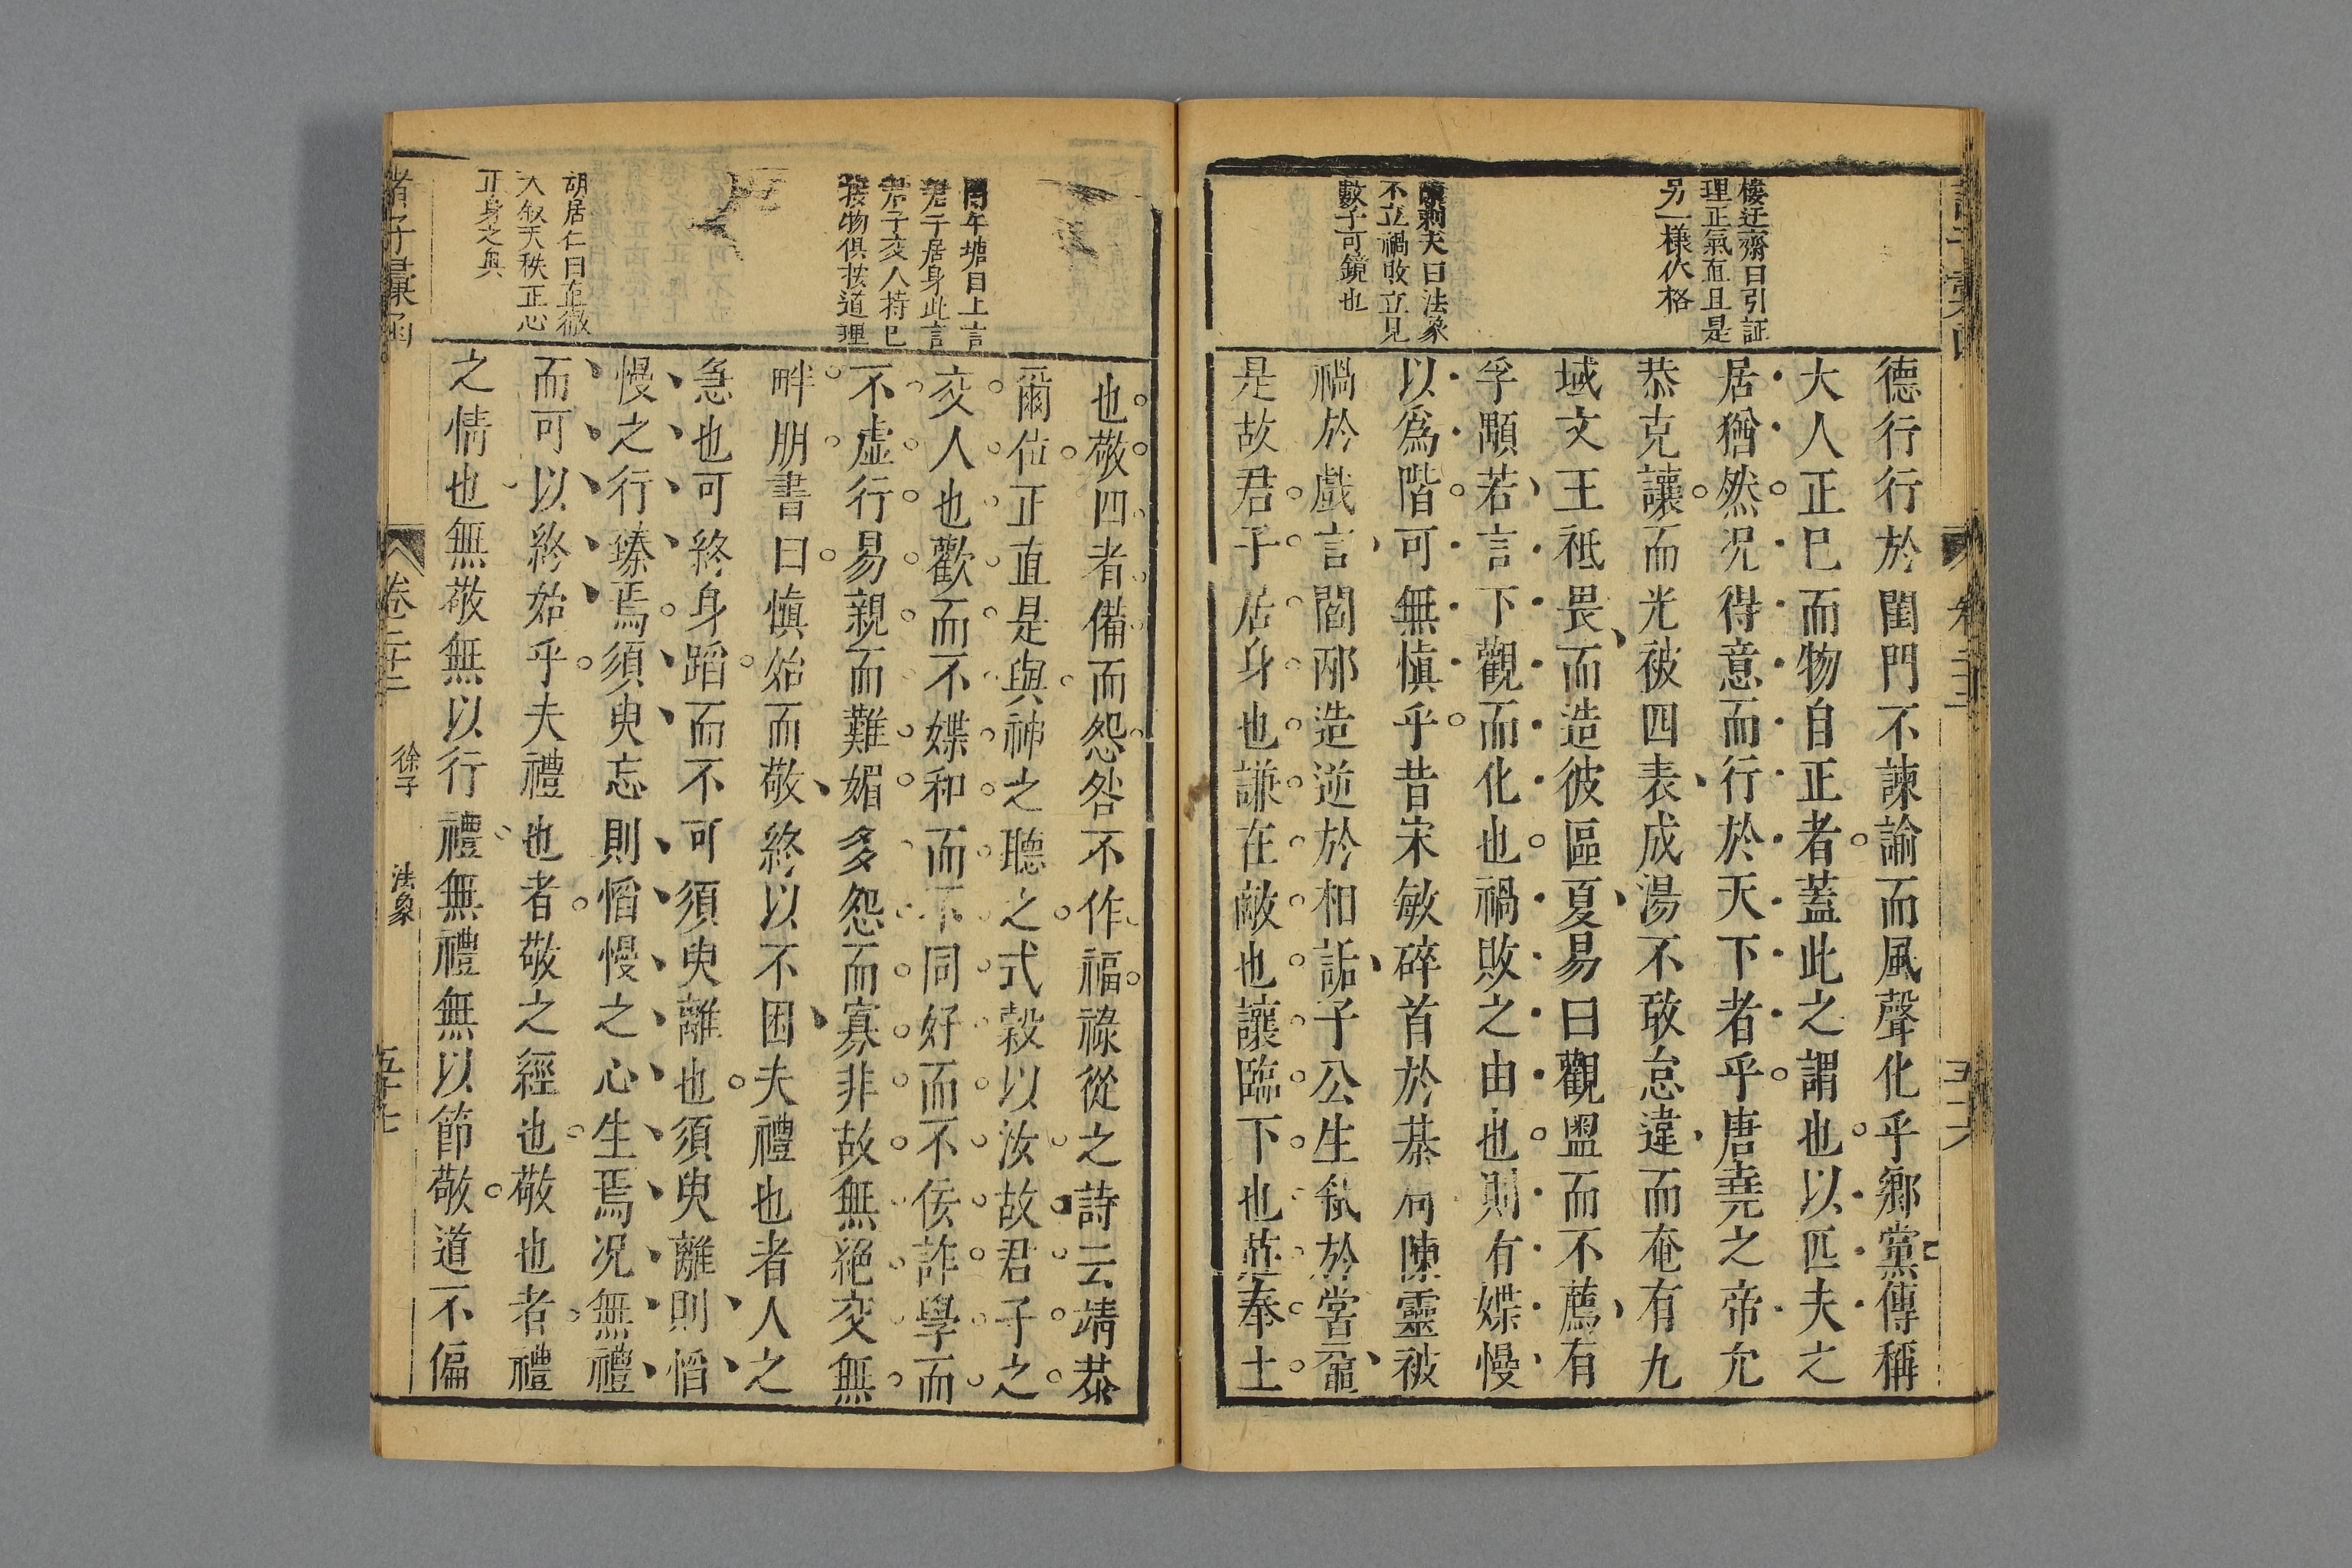 樓迂齋曰引証
理正氣直且是
另一樣伏格
刺夫曰法象
不立禍敗立見
數子可鏡也
德行行於閨門不諫諭而風聲化乎鄉黨傳稱
大人正巳而物自正者蓋此之謂也以匹夫之
居猶然况得意而行於天下者乎唐堯之帝允
恭克讓而光被四表成湯不敢怠違而奄有九
域文王祗畏而造彼區夏易曰觀盥而不薦有
孚顒若言下觀而化也禍敗之由也則有媟慢
以爲階可無慎乎昔宋敏碎首於棊局陳靈被
禍於戲言閻邴造逆於相詬子公生弒於嘗黿
是故君子居身也謙在敵也讓臨下也莊奉士
年塘曰上言
君子居身此言
君子交人持巳
接物俱按道理
胡居仁曰直徹
大叙天秩正心
正身之奥
也敬四者備而怨咎不作福祿從之詩云靖恭
爾位正直是與神之聽之式穀以汝故君子之
交人也歡而不媟和而不同好而不佞詐學而
不虛行易親而難媚多怨而寡非故無絕交無
畔朋書曰慎始而敬終以不困夫禮也者人之
急也可終身蹈而不可須臾離也須臾離則慆
慢之行臻焉須臾忘則慆慢之心生焉况無禮
而可以終始乎夫禮也者敬之經也敬也者禮
之情也無敬無以行禮無禮無以節敬道不偏
諸子彙函
卷二十二
徐子
法象
五十七